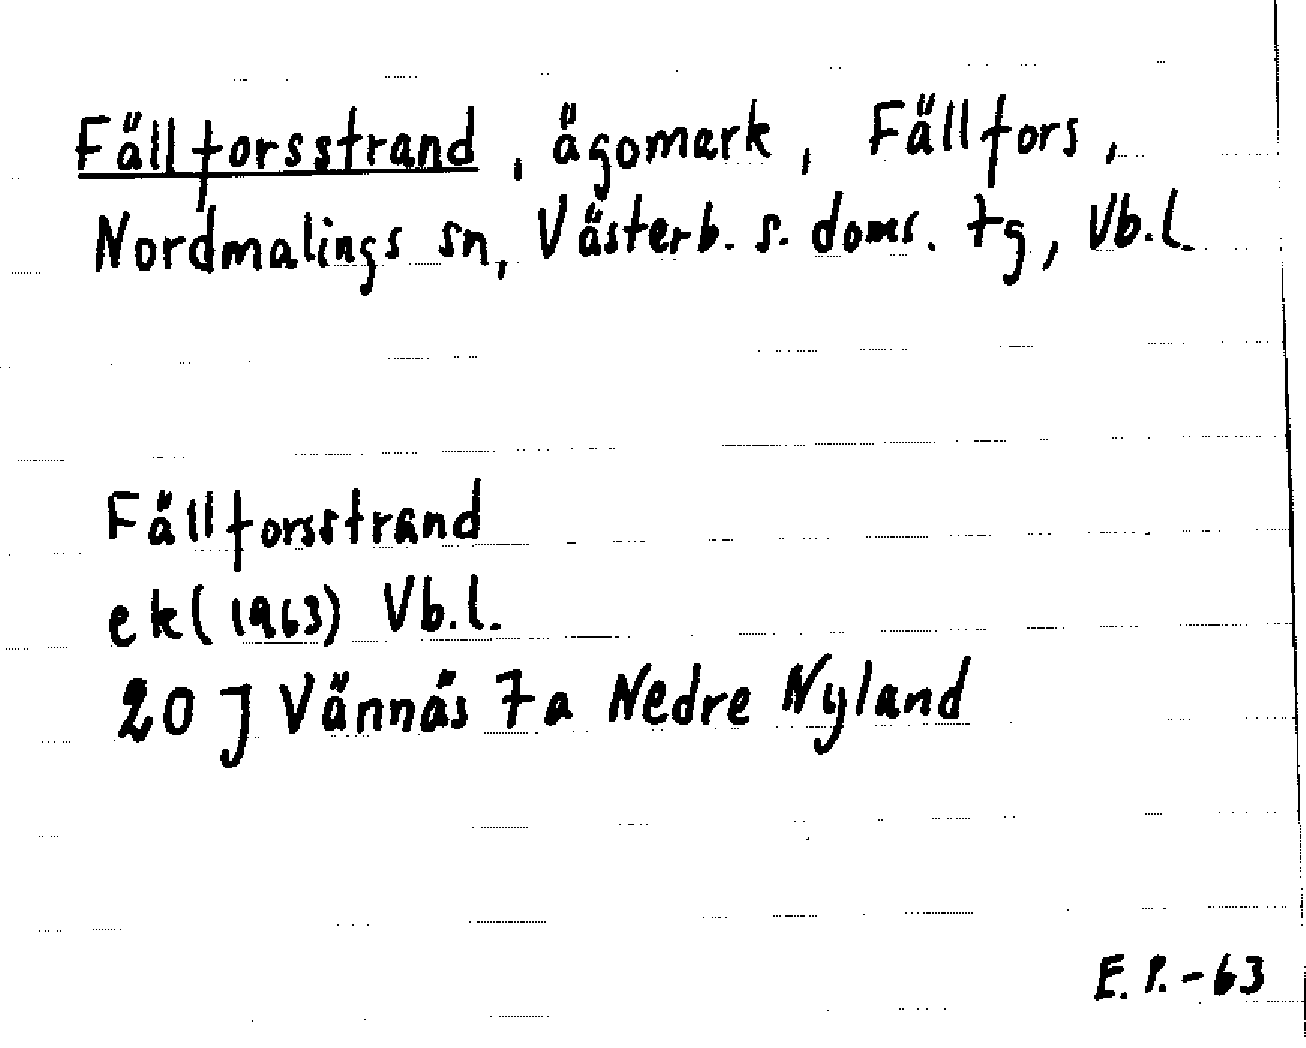 Fällforsstrand, ägomark, Fällfors,
Nordmalings sn, Västerb. s. doms. tg, Vb.l.
Fällforsstrand
ek (1963) Vb.l.
20 J Vännäs 7a Nedre Nyland
E. P. - 63